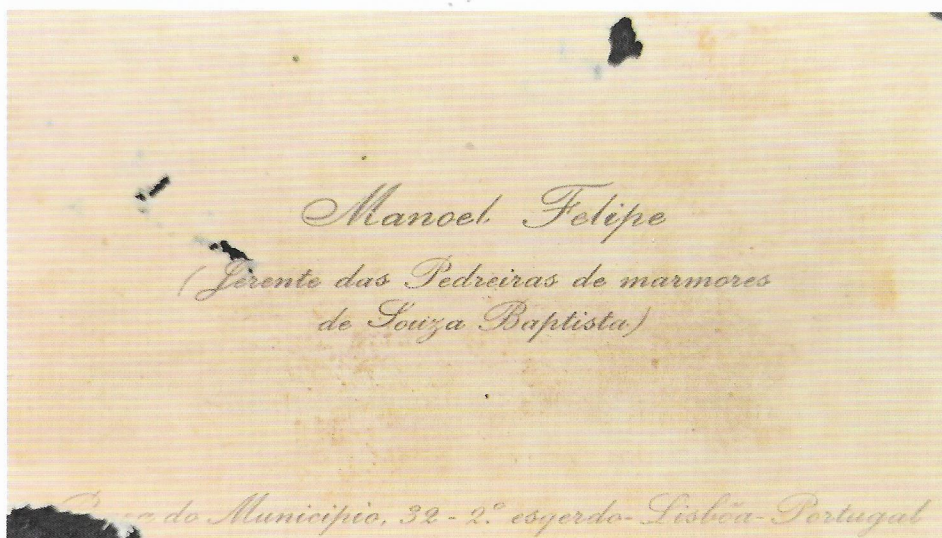 Manoel Felipe
(Gerente das Pedreiras de marmores
de Souza Baptista)
do Municipio, 32 - 2.º esqerdo - Lisbôa - Portugal